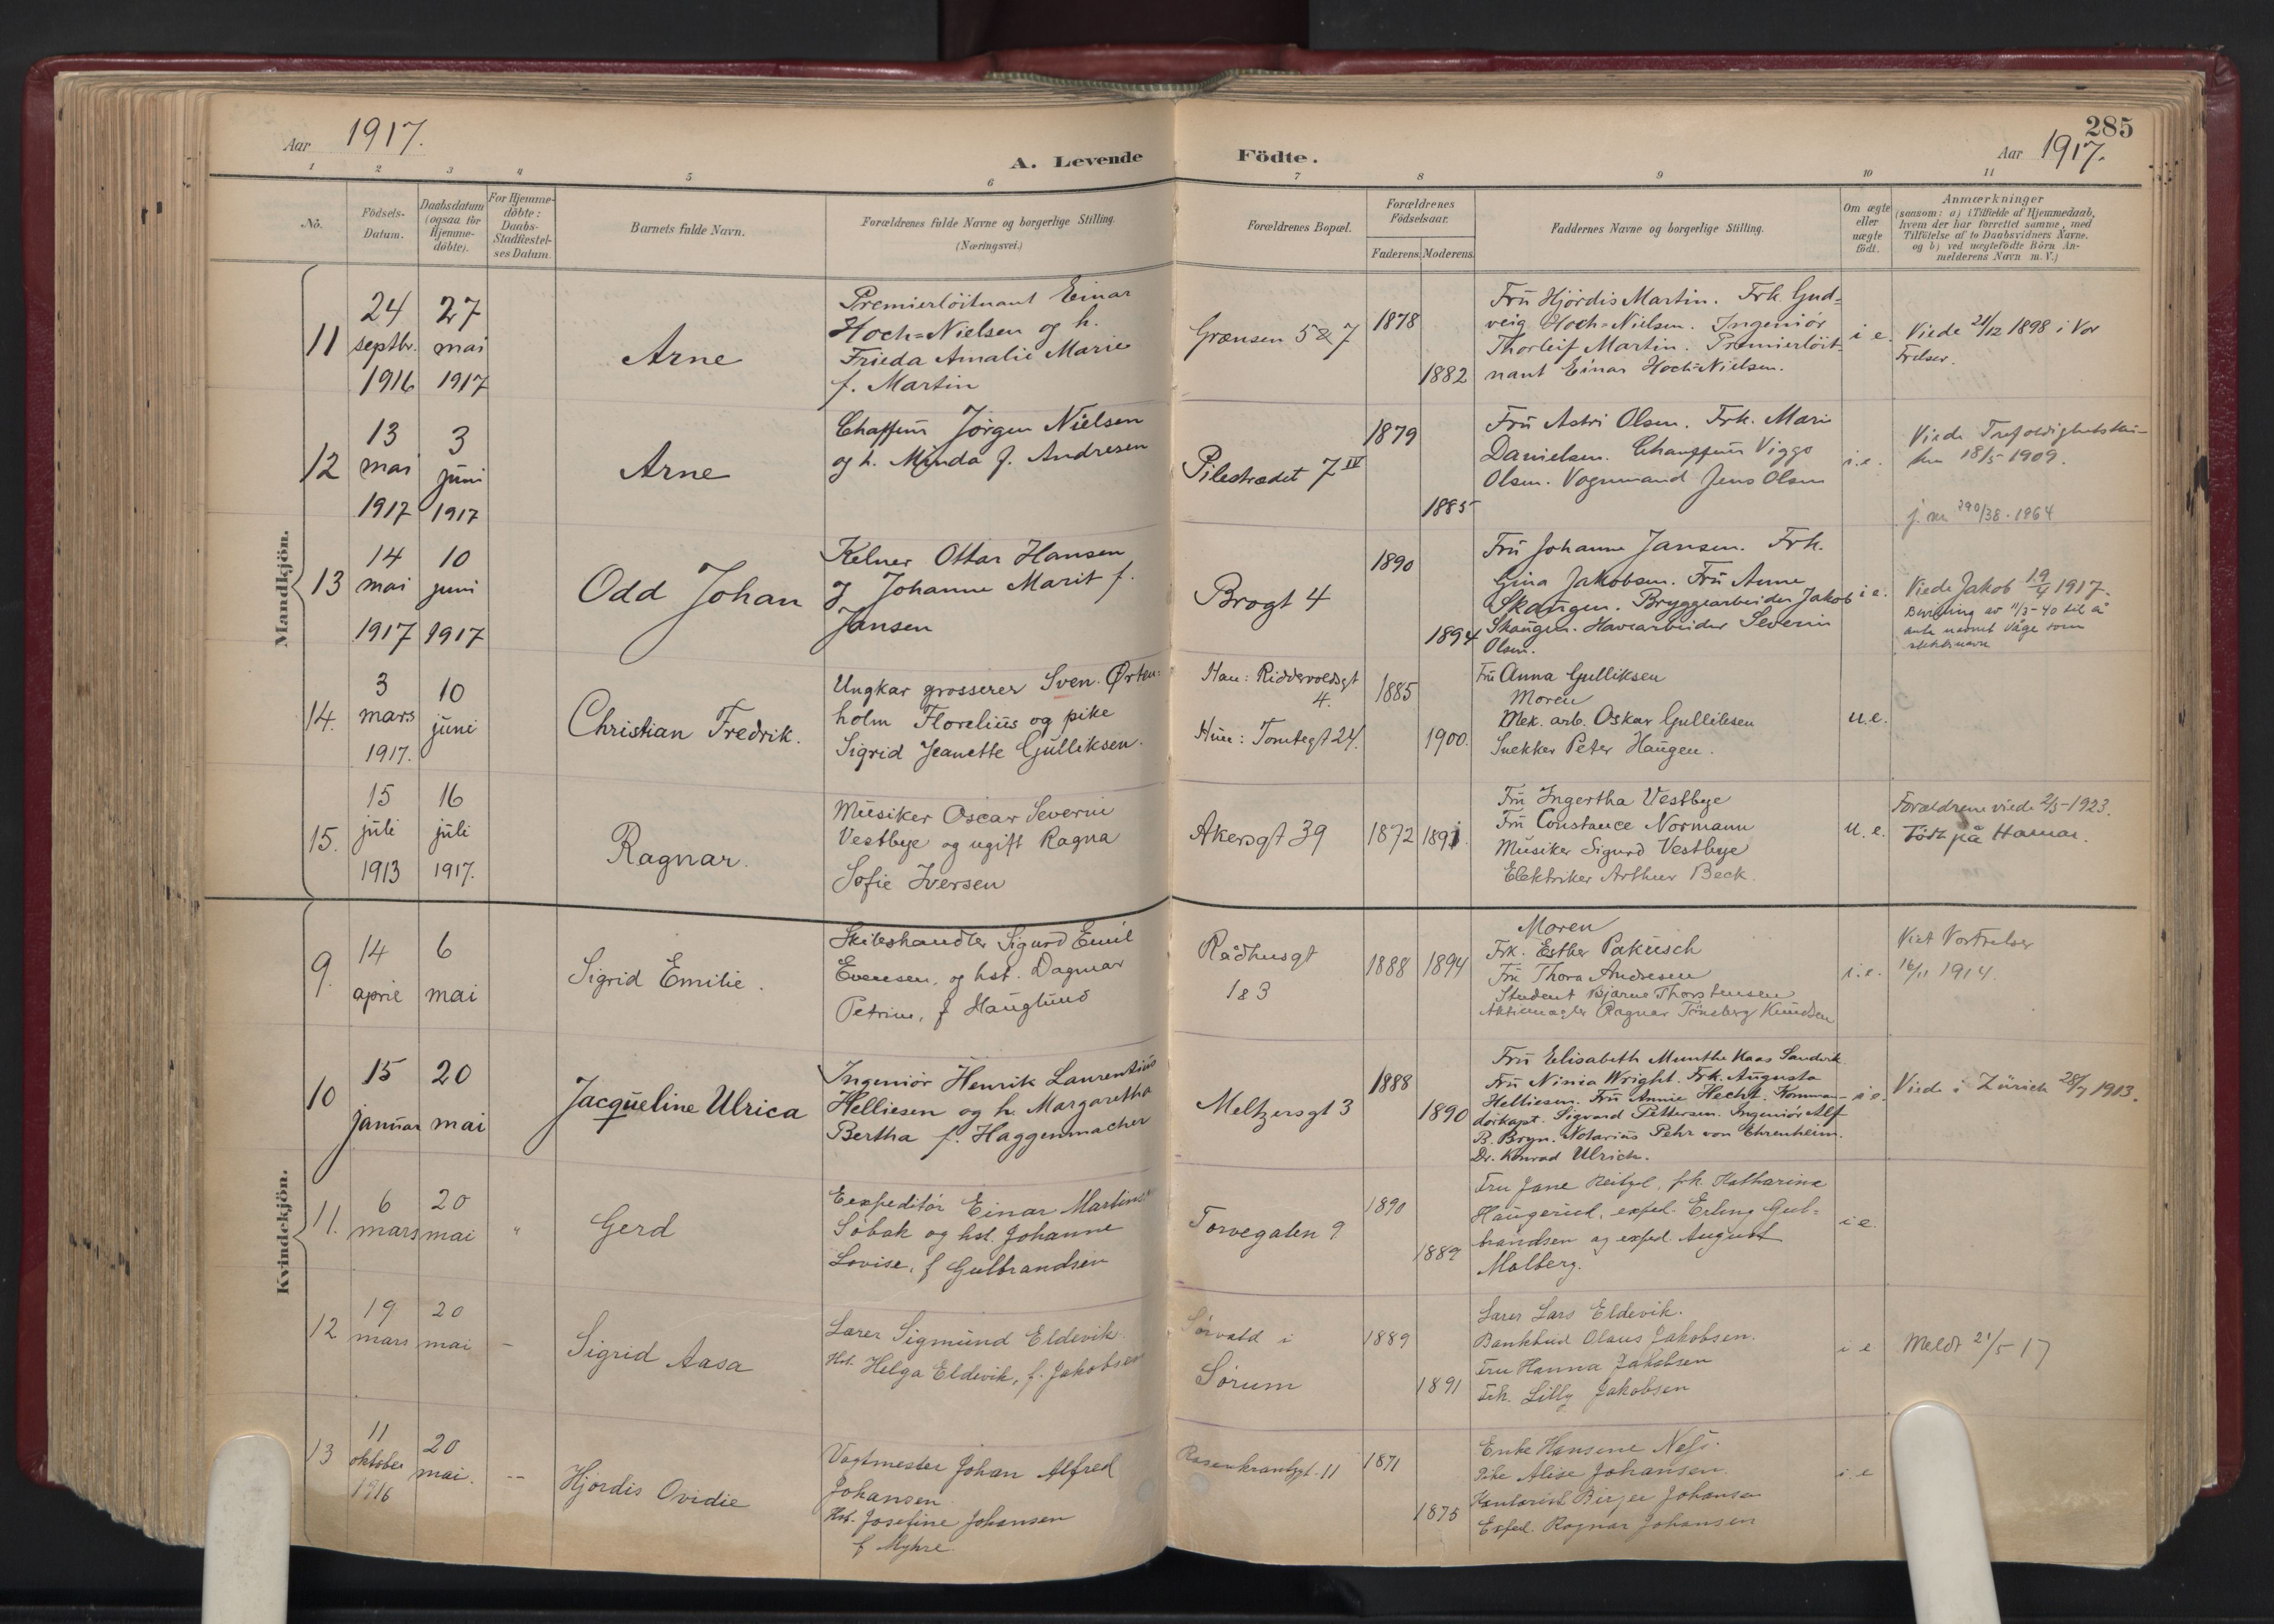 285
Aar 1917.
A. Levende Födte.
Aar 1917.
1 2 3 4 5 6 7 8 9 10 11
No.
Födsels-
Datum.
Daabsdatum
(ogsaa for
Hjemme-
döbte).
For Hjemme-
döbte:
Daabs-
Stadfæstel-
ses Datum.
Barnets fulde Navn.
Forældrenes fulde Navne og borgerlige Stilling.
(Næringsvei.)
Forældrenes Bopæl.
Forældrenes
Födselsaar.
Faderens. Moderens.
Faddernes Navne og borgerlige Stilling.
Om ægte
eller
uægte
födt.
Anmærkninger
(saasom: a) i Tilfælde af Hjemmedaab,
hvem der har forrettet samme, med
Tilföielse af to Daabsvidners Navne.
og b) ved uægtefödte Börn An-
melderens Navn m. V.)
Mandkjön.
11
24
septbr.
1916
27
mai
1917
Arne
Premierlöitnant Einar
Hoch=Nielsen og h.
Frieda Amalie Marie
f. Martin
Grænsen 5 & 7
1878
1882
Frü Hjördis Martin. Frk. Gud=
veig Hoch=Nielsen. Ingeniör
Thorleif Martin. Premierlöit=
nant Einar Hoch=Nielsen.
i e.
Viede 21/12 1898 i Vor
Frelser.
12
13
mai
1917
3
juni
1917
Arne
Chaffeur Jörgen Nielsen
og h. Minda f. Andresen
Pilestrædet 7 IV
1879
1885
Frü Astri Olsen. Frk. Marie
Danielsen. Chauffeur Viggo
Olsen. Vognmand Jens Olsen
i.e.
Viede Trefoldighetskir-
ken 18/5 1909.
j. nr 790/38-1964
13
14
mai
1917
10
juni
1917
Odd Johan
Kelner Ottar Hansen
og Johanne Marit f.
Jansen
Brogt 4
1890
1894
Frü Johanne Jansen. Frk.
Gina Jakobsen. Frü Anne
Skangen. Bryggearbeider Jakob
Skaugen. Havearbeider Severin
Olsen.
i e.
Viede Jakob 19/4 1917.
Bevilling av 11/3-40 til å
anta navnet Våge som
slektsnavn
14.
3
mars
1917.
10
juni
Christian Fredrik.
Ungkar grosserer Sven Örten=
holm Florelius og pike
Sigrid Jeanette Gulliksen.
Han: Riddervoldsgt
4.
Hun: Tomtegt 24.
1885
1900.
Frü Anna Gulliksen
Moren
Mek. arb. Oskar Gulliksen
Snekker Peter Haugen.
u.e.
15.
15
juli
1913
16
juli
1917.
Ragnar.
Musiker Oscar Severin
Vestbye og ugift Ragna
Sofie Iversen
Akersgt 39
1872
1891.
Frü Ingertha Vestbye
Frü Constance Normann
Musiker Sigurd Vestbye
Elektriker Arthur Beck.
u. e.
Forældrene viede 2/5-1923.
Födt på Hamar.
Kvindekjön.
9.
14
april
6
mai
Sigrid Emilie.
Skibshandler Sigurd Emil
Evensen, og hst. Dagmar
Petrine, f Hauglund
Rådhusgt
1 & 3
1888
1894
Moren
Frk. Esther Pakusch
Frü Thora Andresen
Student Bjarne Thorstensen
Aktiemægler Ragnar Tönsberg Knudsen
i.e.
Viet Vor Frelser
16/11 1914.
10
15
januar
20
mai
Jacqueline Ulrica
Ingeniör Henrik Laurentius
Helliesen og h. Margaretha
Bertha f. Haggenmacher
Meltzersgt 3
1888
1890
Frü Elisabeth Munthe Kaas Sandvik
Frü Ninia Wright. Frk. Augusta
Helliesen. Frü Annie Hecht. Komman-
dörkapt. Sigvard Pettersen. Ingeniör Alf
B. Bryn. Notarius Pehr von Ehrenheim.
Dr. Konrad Ulrich.
i e.
Viede i Zürich 28/7 1913.
11.
6
mars
20
mai
"
Gerd
Eexpeditör Einar Martins
Söbak og hst. Johanne
Lovise, f Gulbrandsen
Torvegaten 9
1890
1889
Fru Jane Reitzel, frk. Katharina
Haugerud, exped. Erling Gul=
brandsen og exped August
Molberg.
i e.
12
19
mars
20
mai
-
Sigrid Aasa
Lærer Sigmund Eldevik
Hst. Helga Eldevik, f. Jakobsen
Sörvald i
Sörum
1889
1891
Lærer Lars Eldevik.
Bankbud Olaus Jakobsen.
Fru Hanna Jakobsen
Frk. Lilly Jakobsen
i e
Meldt 21/5 17
13
11
oktober
1916
20
mai.
--
Hjördis Ovidie
Vagtmester Johan Alfred
Johansen
Hst. Josefine Johansen
f Myhre.
Rosenkrantzgt. 11
1871
1875
Enke Hansine Næss.
Pike Alise Johansen.
Kontorist Birger Johansen
Exped. Ragnar Johansen
i e